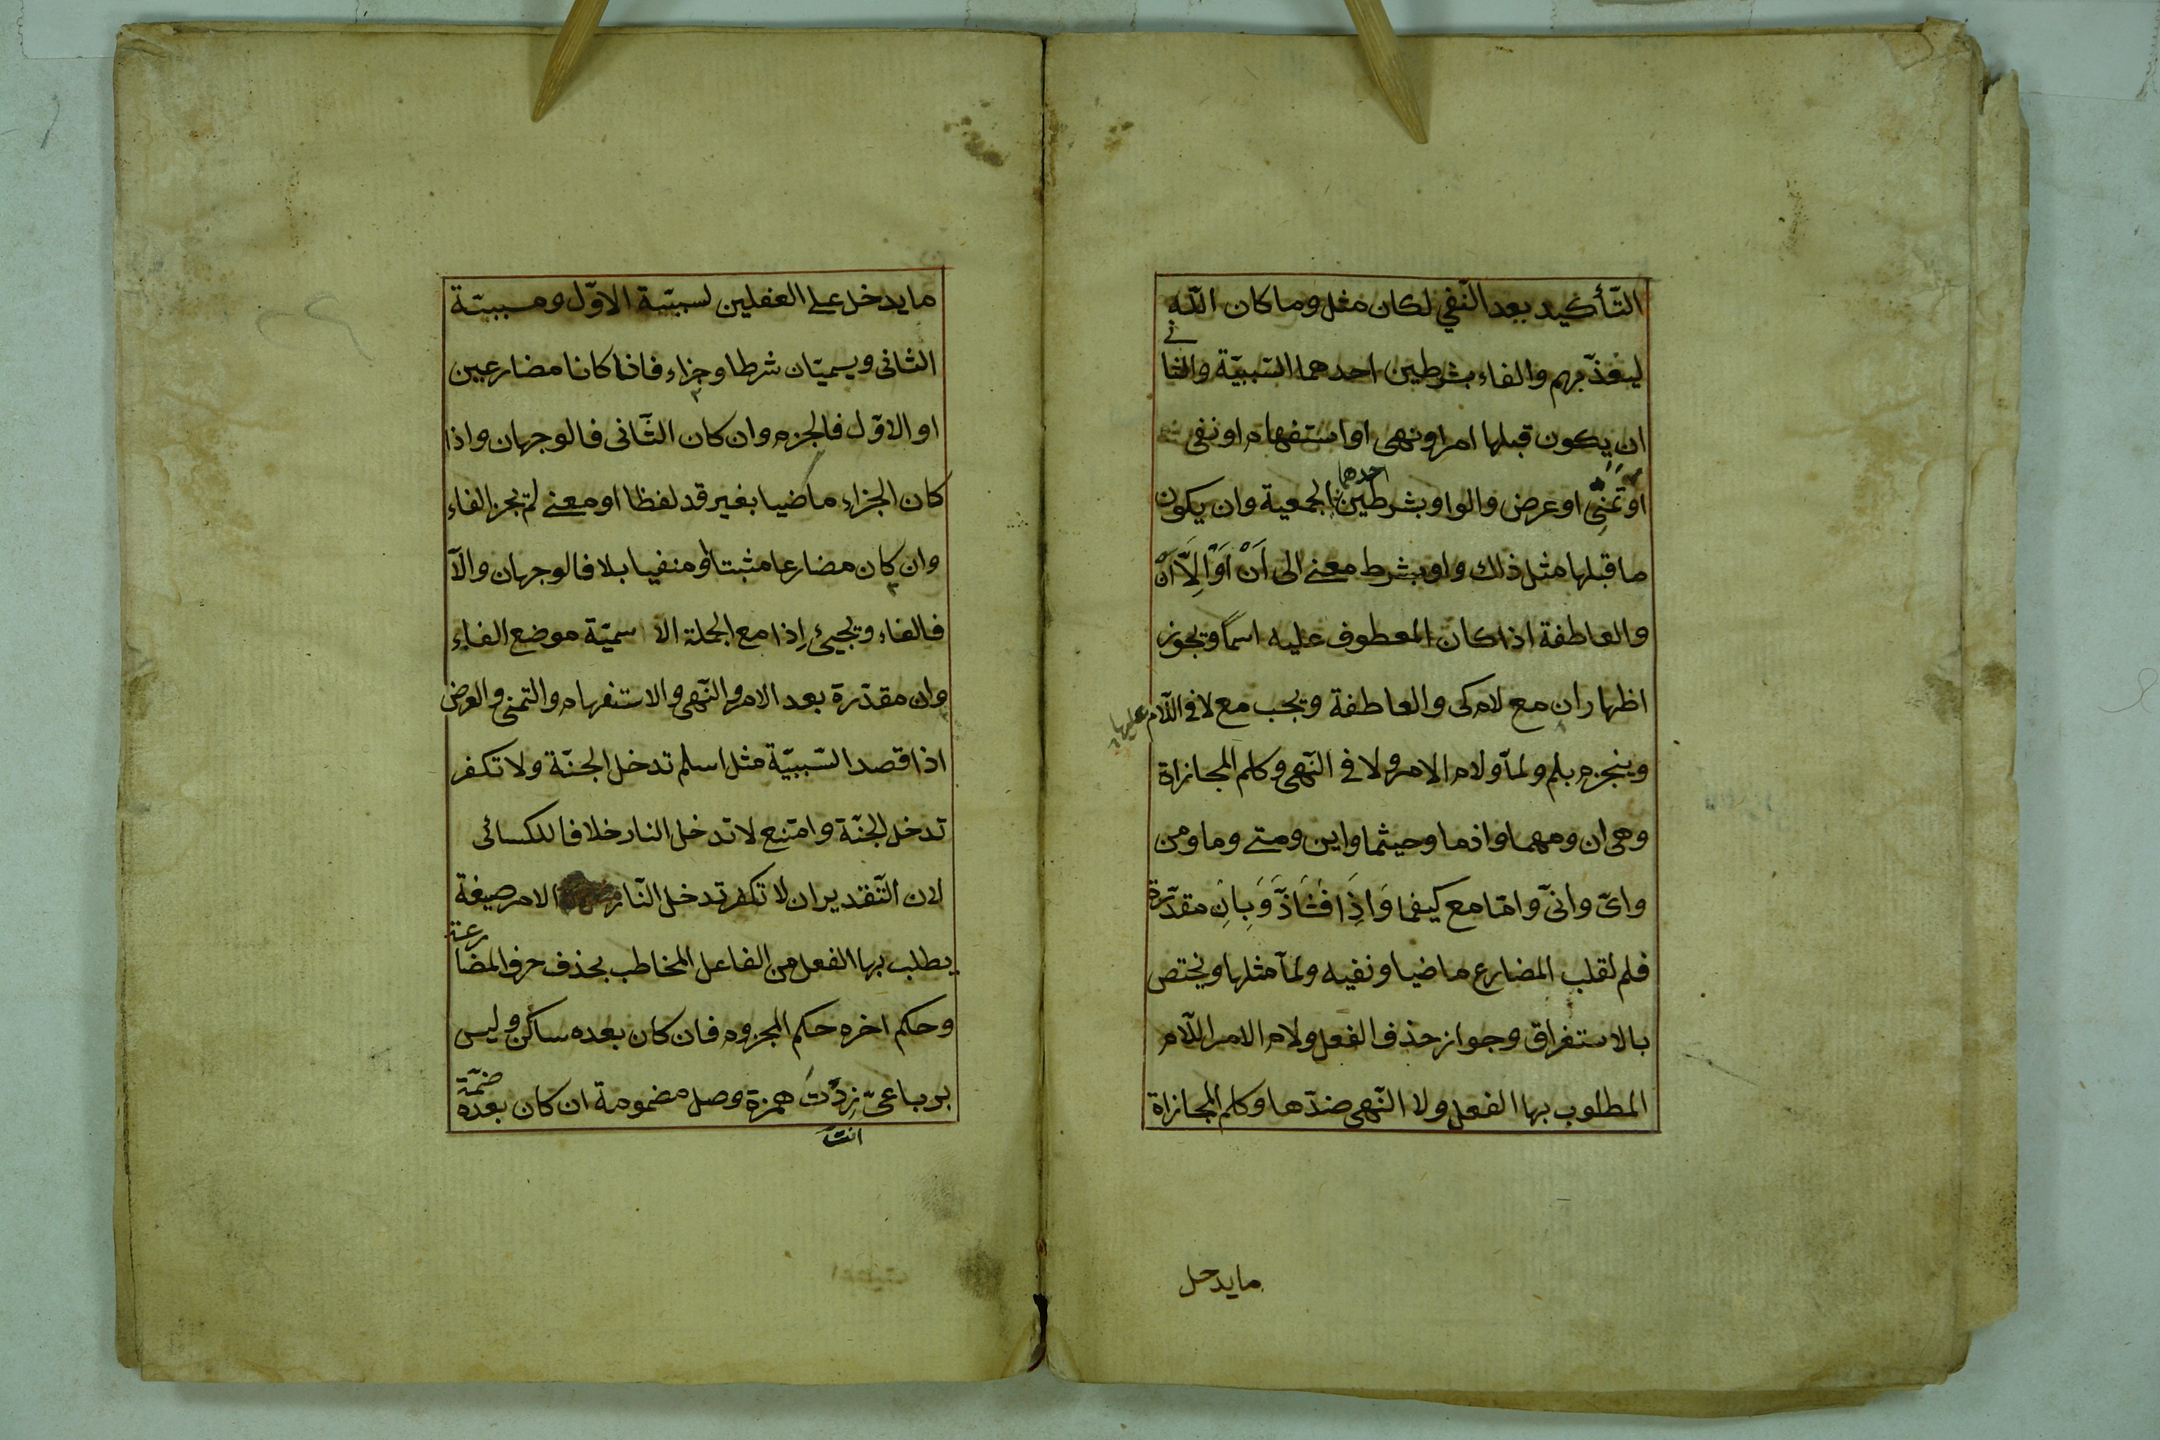 التّأكيد بعد النّفي لكان مثل وما كان الله
ليعذّبهم والفاء بشرطين احدهما السّببيّة والثا
ني
ان يكون قبلها امر او نهى او استفهام او نفى
او تمنى او عرض والواو بشرطين الجمعية وان يكون
احدهما
ما قبلها مثل ذلك واو بشرط معنے الى اَنْ اَوْ اِلَّا اَنْ
والعاطفة اذا كان المعطوف عليه اسمًا ويجوز
اظهار ان مع لام كى والعاطفة ويجب مع لا فى اللّام
عليها
وينجزم بلم ولمّا ولام الامر ولا فى النّهى وكلم المجازاة
وهى ان ومهما واذما وحيثما واين ومتے وما ومن
واىّ وانّى وامّا مع كيفما وَاِذَا فَشَاذّ وَبِاِنْ مقدّرة
فلم لقلب المضارع ماضيا ونفيه ولمّا مثلها ويختص
بالاستغراق وجواز حذف الفعل ولام الامر اللّام
المطلوب بها الفعل ولا النّهى ضدّها وكلم المجازاة
مايدخل
ما يدخل على الفعلين لسببيّة الاوّل ومسببيّة
الثانى ويسمّيان شرطا وجزاء فاذا كانا مضارعين
او الاوّل فالجزم وان كان الثّانى فالوجهان واذا
كان الجزاء ماضيا بغير قد لفظا او معنے لم يجز الفاء
وان كان مضارعا مثبتا او منفيا بلا فالوجهان والّا
فالفاء ويجيئ اِذا مع الجملة الاسميّة موضع الفاء
وان مقدّرة بعد الامر والنّهى والاستفهام والتمنى والعرض
اذا قصد السّببيّة مثل اسلم تدخل الجنّة ولا تكفر
تدخل الجنّة وامتنع لا تدخل النار خلافا للكسائى
لان التّقدير ان لا تكفر تدخل النّار الامر صيغة
يطلب بها الفعل من الفاعل المخاطب بحذف حرف المضا
رعة
وحكم اخره حكم المجزوم فان كان بعده ساكن وليس
برباعىّ زِدْتَ همزة وصل مضمومة ان كان بعده
ضمّة
انت